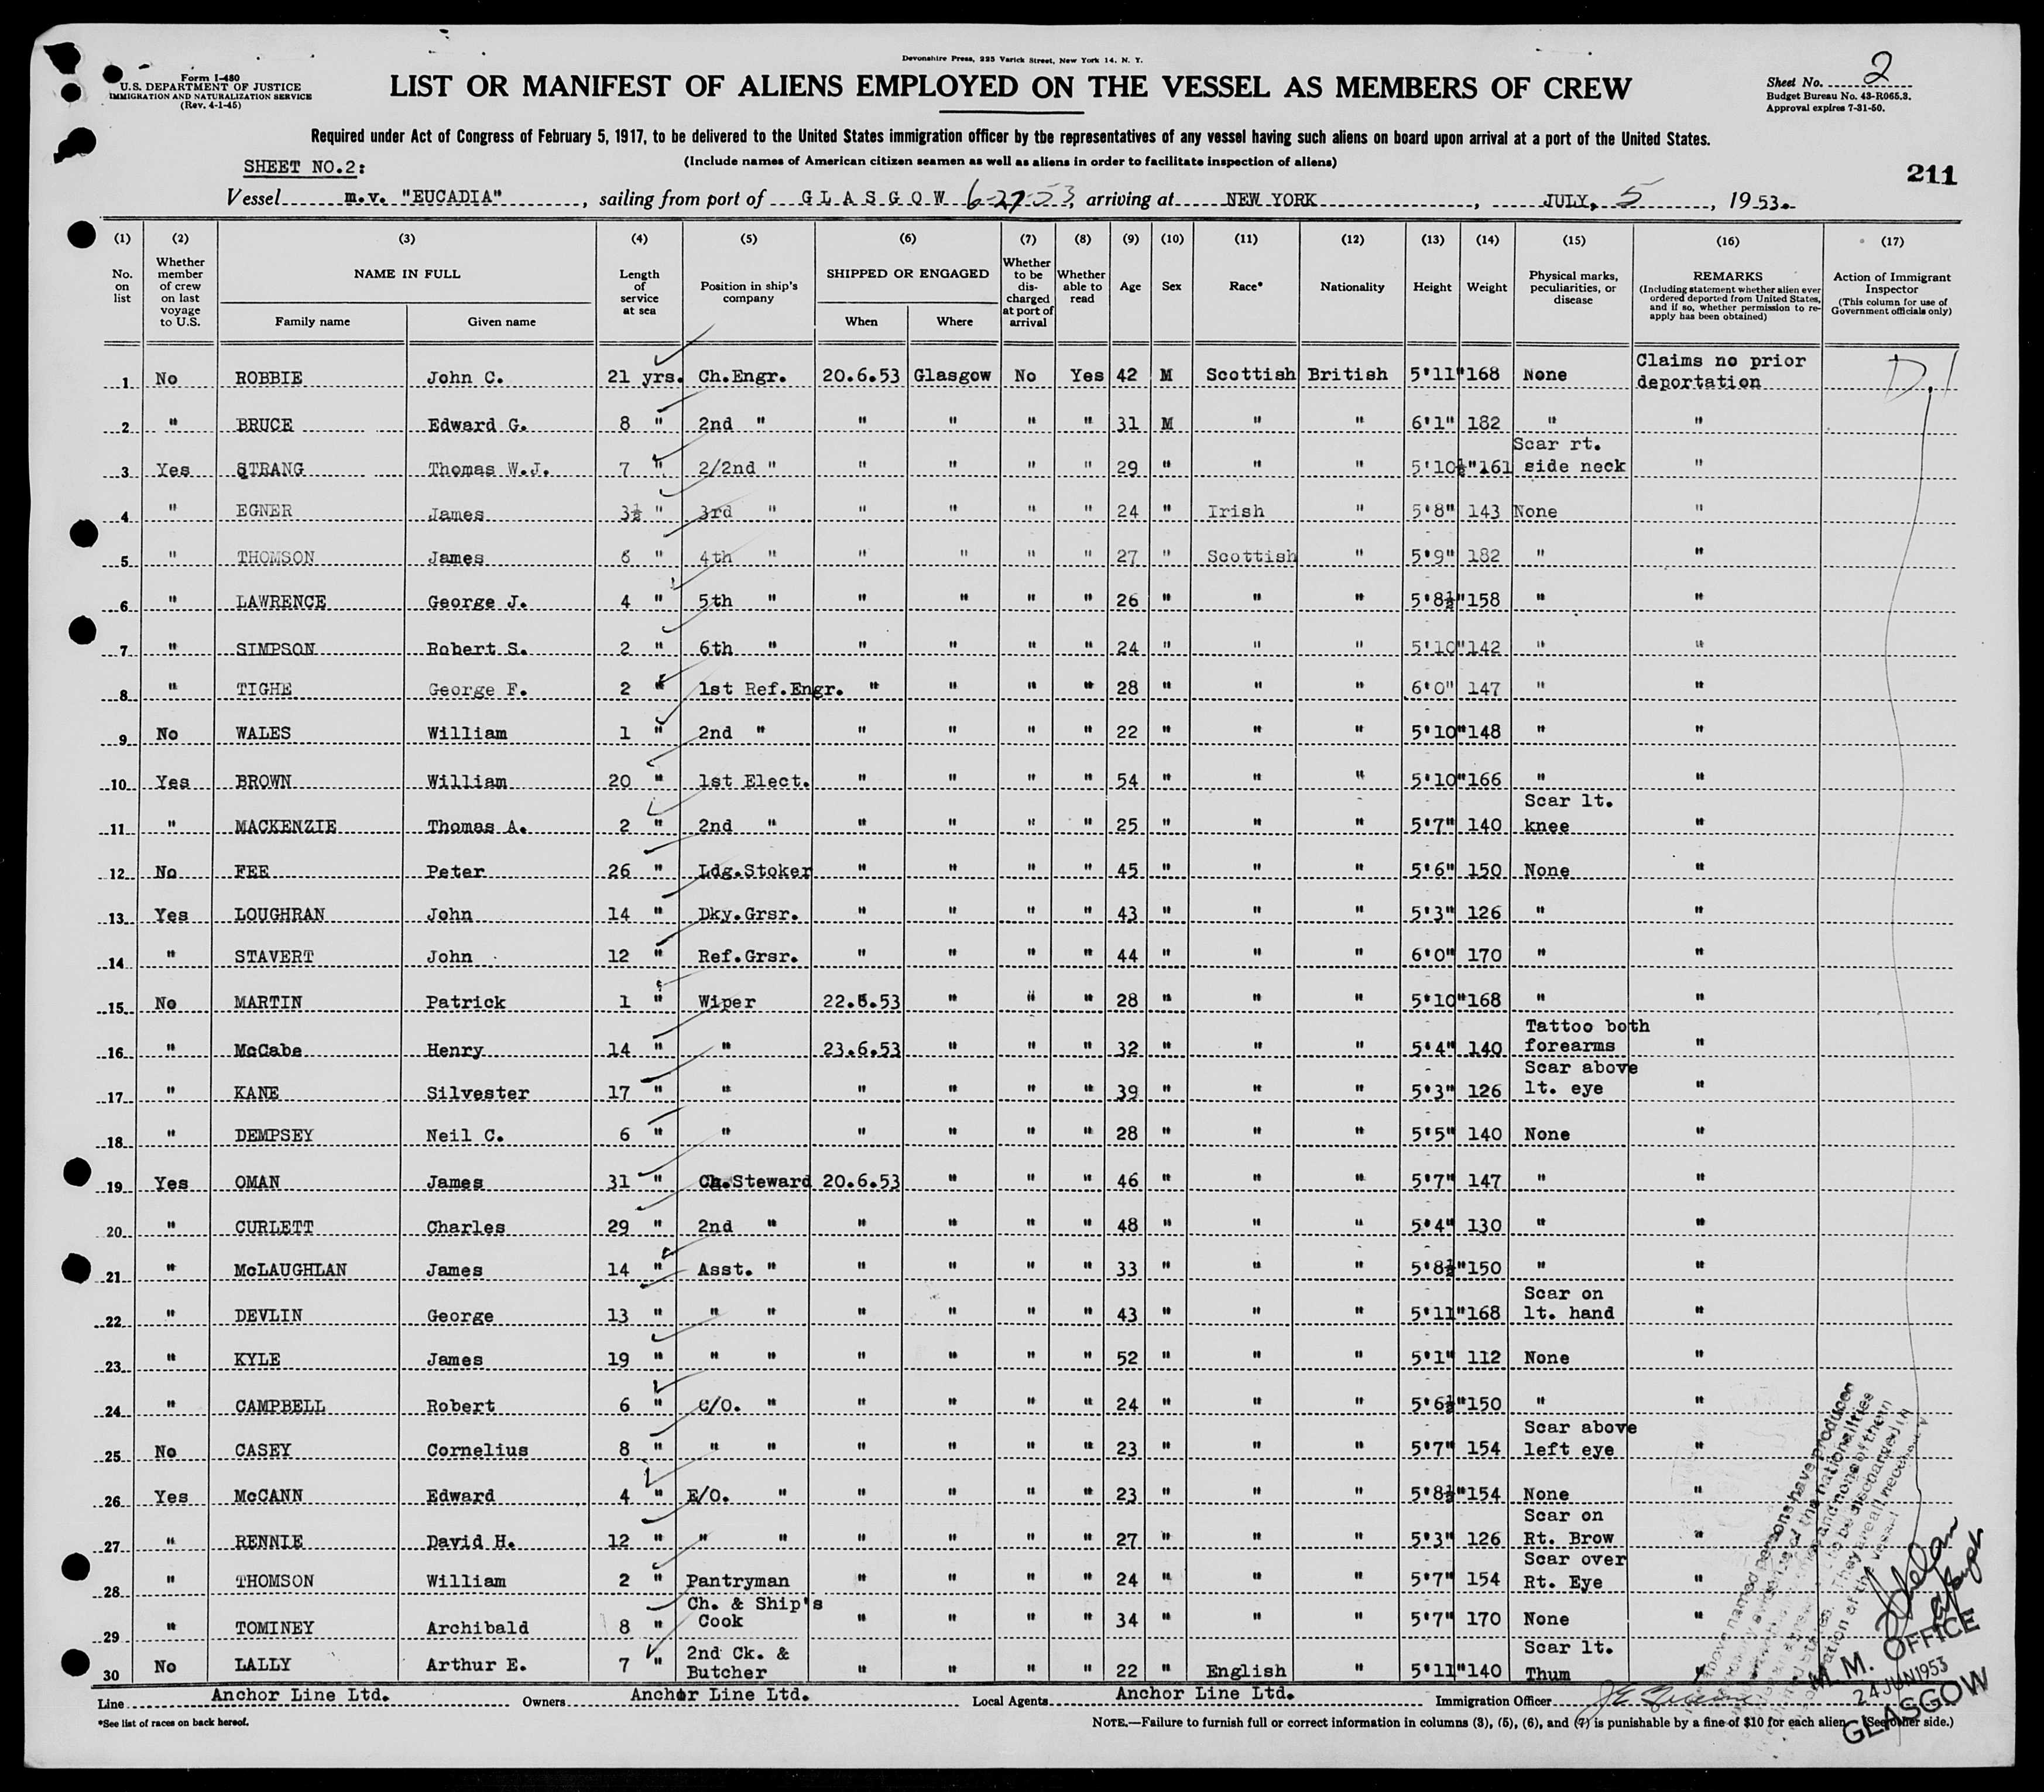 Devonshire Press, 225 Varick Street, New York 14, N. Y.
Form I-480
U.S. DEPARTMENT OF JUSTICE
IMMIGRATION AND NATURALIZATION SERVICE
(Rev. 4-1-45)
LIST OR MANIFEST OF ALIENS EMPLOYED ON THE VESSEL AS MEMBERS OF CREW
Sheet No. 2
Budget Bureau No. 43-R065.3.
Approval expires 7-31-50.
Required under Act of Congress of February 5, 1917, to be delivered to the United States immigration officer by the representatives of any vessel having such aliens on board upon arrival at a port of the United States.
(Include names of American citizen seamen as well as aliens in order to facilitate inspection of aliens)
SHEET NO.2:
211
Vessel m.v. "EUCADIA", sailing from port of GLASGOW 6-27-53, arriving at NEW YORK, JULY, 5, 1953.
(1) (2) (3) (4) (5) (6) (7) (8) (9) (10) (11) (12) (13) (14) (15) (16) (17)
No. on list
Whether member of crew on last voyage to U.S.
NAME IN FULL
Family name
Given name
Length of service at sea
Position in ship's company
SHIPPED OR ENGAGED
When
Where
Whether to be discharged at port of arrival
Whether able to read
Age
Sex
Race*
Nationality
Height
Weight
Physical marks, peculiarities, or disease
REMARKS
(Including statement whether alien ever ordered deported from United States, and if so, whether permission to re-apply has been obtained)
Action of Immigrant Inspector
(This column for use of Government officials only)
1 No ROBBIE John C. 21 yrs. Ch.Engr. 20.6.53 Glasgow No Yes 42 M Scottish British 5'11" 168 None Claims no prior deportation
2 " BRUCE Edward G. 8 " 2nd " " " " " 31 M " " 6'1" 182 " "
3 Yes STRANG Thomas W.J. 7 " 2/2nd " " " " " 29 " " " 5'10½" 161 Scar rt. side neck "
4 " EGNER James 3½ " 3rd " " " " " 24 " Irish " 5'8" 143 None "
5 " THOMSON James 6 " 4th " " " " " 27 " Scottish " 5'9" 182 " "
6 " LAWRENCE George J. 4 " 5th " " " " " 26 " " " 5'8½" 158 " "
7 " SIMPSON Robert S. 2 " 6th " " " " " 24 " " " 5'10" 142 " "
8 " TIGHE George F. 2 " 1st Ref.Engr. " " " " 28 " " " 6'0" 147 " "
9 No WALES William 1 " 2nd " " " " " 22 " " " 5'10" 148 " "
10 Yes BROWN William 20 " 1st Elect. " " " " 54 " " " 5'10" 166 " "
11 " MACKENZIE Thomas A. 2 " 2nd " " " " " 25 " " " 5'7" 140 Scar lt. knee "
12 No FEE Peter 26 " Ldg.Stoker " " " " 45 " " " 5'6" 150 None "
13 Yes LOUGHRAN John 14 " Dky.Grsr. " " " " 43 " " " 5'3" 126 " "
14 " STAVERT John 12 " Ref.Grsr. " " " " 44 " " " 6'0" 170 " "
15 No MARTIN Patrick 1 " Wiper 22.6.53 " " " 28 " " " 5'10" 168 " "
16 " McCabe Henry 14 " " 23.6.53 " " " 32 " " " 5'4" 140 Tattoo both forearms "
17 " KANE Silvester 17 " " " " " " 39 " " " 5'3" 126 Scar above lt. eye "
18 " DEMPSEY Neil C. 6 " " " " " " 28 " " " 5'5" 140 None "
19 Yes OMAN James 31 " Ch.Steward 20.6.53 " " " 46 " " " 5'7" 147 " "
20 " CURLETT Charles 29 " 2nd " " " " " 48 " " " 5'4" 130 " "
21 " McLAUGHLAN James 14 " Asst. " " " " " 33 " " " 5'8½" 150 " "
22 " DEVLIN George 13 " " " " " " " 43 " " " 5'11" 168 Scar on lt. hand "
23 " KYLE James 19 " " " " " " " 52 " " " 5'1" 112 None "
24 " CAMPBELL Robert 6 " C/O. " " " " " 24 " " " 5'6½" 150 " "
25 No CASEY Cornelius 8 " " " " " " " 23 " " " 5'7" 154 Scar above left eye "
26 Yes McCANN Edward 4 " E/O. " " " " " 23 " " " 5'8½" 154 None "
27 " RENNIE David H. 12 " " " " " " " 27 " " " 5'3" 126 Scar on Rt. Brow "
28 " THOMSON William 2 " Pantryman " " " " 24 " " " 5'7" 154 Scar over Rt. Eye "
29 " TOMINEY Archibald 8 " Ch. & Ship's Cook " " " " 34 " " " 5'7" 170 None "
30 No LALLY Arthur E. 7 " 2nd Ck. & Butcher " " " " 22 " English " 5'11" 140 Scar lt. Thum
above named persons have produced
of the nationalities
and none of them
to be discharged in
They are all
vessel
M. M. OFFICE
24 JUN 1953
GLASGOW
Line Anchor Line Ltd. Owners Anchor Line Ltd. Local Agents Anchor Line Ltd. Immigration Officer
*See list of races on back hereof.
NOTE.—Failure to furnish full or correct information in columns (3), (5), (6), and (7) is punishable by a fine of $10 for each alien. (See other side.)